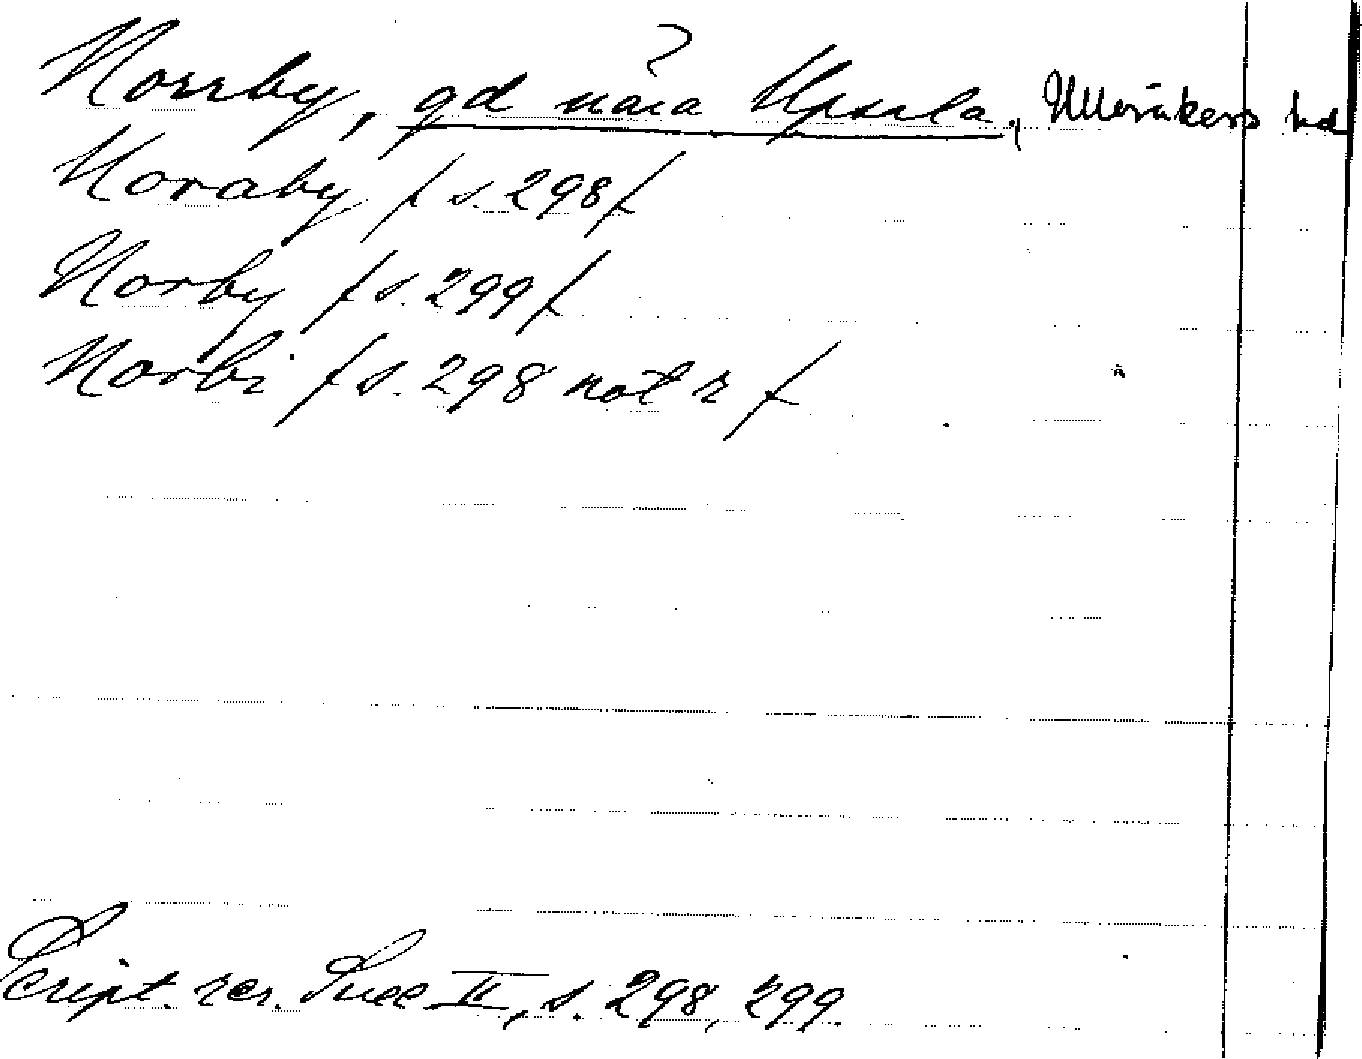 Norrby, gd nära Upsala, Ulleråkers hd
Noraby / s. 298 /
Norby / s. 299 /
Norbi / s. 298 not r /
Script. rer. Suec II, s. 298, 299.